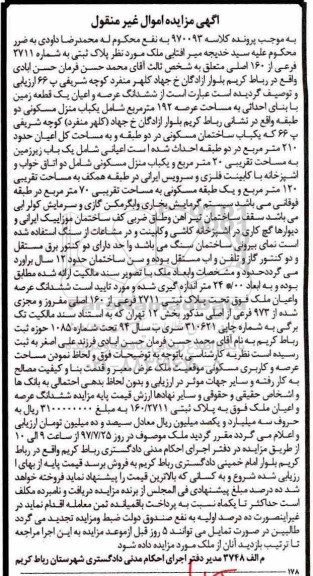 آگهی مزایده اموال غیر منقول
به موجب پرونده کلاسه ۹۷۰۰۹۳ به نفع محکوم له محمدرضا داودی به ضرر
محکوم علیه سید خدیجه میر افتابی ملک مورد نظر پلاک ثبتی به شماره ۲۷۱۱
فرعی از ۱۶۰ اصلی متعلق به شخص ثالث آقای محمد حسن فرمان حسن ابادی
واقع در رباط کریم بلوار ازادگان خ جهاد کلهر منفرد کوچه شریفی پ ۶۶ ارزیابی
و توصیف گردیده است عبارت است از ششدانگ عرصه و اعیان یک قطعه زمین
با بنای احداثی به مساحت عرصه ۱۹۲ مترمربع شامل یکباب منزل مسکونی دو
طبقه واقع در نشانی رباط کریم بلوار آزادگان خ جهاد (کلهر منفرد) کوچه شریفی
پ ۶۶ که یکباب ساختمان مسکونی در دو طبقه و به مساحت کل اعیان حدود
۲۱۰ متر مربع در دو طبقه احداث شده است اعیانی شامل یک باب زیرزمین
به مساحت تقریبی ۲۰ متر مربع و یکباب منزل مسکونی شامل دو اتاق خواب و
اشپزخانه با کابینت فلزی و سرویس ایرانی در طبقه همکف به مساحت تقریبی
۱۲۰ متر مربع و یک طبقه مسکونی به مساحت تقریبی ۷۰ متر مربع در طبقه
فوقانی می باشد سیستم گرمایش بخاری وابگرمکن گازی و سرمایش کولر ابی
می باشد سقف ساختمان تیر آهن وطاق ضربی کف ساختمان موزاییک ایرانی و
دیوارها گچ کاری در اشپزخانه کاشی و کابینت و در مشاعات از سنگ استفاده شده
است نمای بیرونی ساختمان سنگ می باشد واحد دارای دو کنتور برق مستقل
و دو کنتور گاز و تلفن و اب مستقل بوده و سن ساختمان حدود ۱۲ سال براورد
می گرددحدود و مشخصات وابعاد ملک با تصویر سند مالکیت ارائه شده مطابق
بوده و به ابعاد ۲۴*۸/۰۰ متر اندازه گیری شده و مورد تایید است ششدانگ عرصه
واعیان ملک فوق تحت پلاک ثبتی ۲۷۱۱ فرعی از ۱۶۰ اصلی مفروز و مجزی
شده از ۹۷۳ فرعی از اصلی مذکور بخش ۱۲ تهران که به استناد سند مالکیت تک
برگی به شماره چاپی ۳۱۰۶۲۱ سری ب سال ۹۴ تحت شماره ۱۰۸۵ حوزه ثبت
رباط کریم به نام آقای محمد حسین فرمان حسن ابادی فرزند علی اصغر به ثبت
رسیده است نظریه کارشناسی باتوجه به توضیحات فوق و لحاظ نمودن مساحت
عرصه و کاربری مسکونی موقعیت ملک عرض معبر و قدمت بنا و کیفیت مصالح
به کار رفته و سایر جهات موثر در ارزیابی و بدون لحاظ بدهی احتمالی به بانک ها
و اشخاص حقیقی و حقوقی و سایر نهادها ارزش قیمت پایه مزایده ششدانگ عرصه
و اعیان ملک فوق به پلاک ثبتی ۱۶۰/۲۷۱۱ به مبلغ ۳۱۰۰۰۰۰۰۰۰ ریال به
حروف سه میلیارد و یکصد میلیون ریال معادل سیصد و ده میلیون تومان ارزیابی
و اعلام می گردد مقرر گردید ملک موصوف در روز ۹۷/۷/۲۵ از ساعت ۹ الی ۱۰
از طریق مزایده در دفتر اجرای احکام مدنی دادگستری رباط کریم واقع در رباط
کریم بلوار امام خمینی دادگستری رباط کریم به فروش برسد قیمت پایه از بهای ا
رزیابی شده شروع و به کسانی که بالاترین قیمت را پیشنهاد نماید فروخته خواهد
شد ده درصد مبلغ پیشنهادی فی المجلس از برنده مزایده دریافت و نامبرده مکلف
است حداکثر تا یکماه نسبت به پرداخت باقیمانده ثمن معامله اقدام نماید در
غیراینصورت ده درصد اولیه به نفع صندوق دولت ضبط ومزایده تجدید می گردد
طالبین در صورت تمایل می توانند ۵ روز قبل ازموعد مزایده به این اجرا مراجعه
تا ترتیب بازدید آنان از ملک مورد مزایده داده شود
م الف ۳۷۴۸ مدیر دفتر اجرای احکام مدنی دادگستری شهرستان رباط کریم
۱۷۸